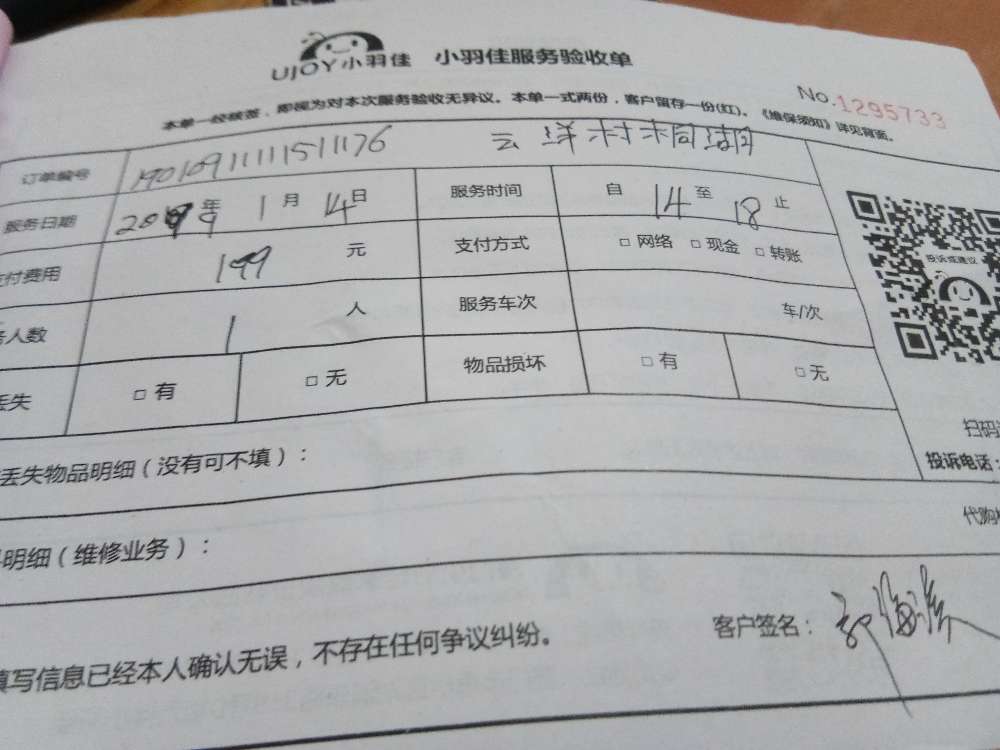 UJOY小羽佳 小羽佳服务验收单
No.1295733
本单一经核签，即视为对本次服务验收无异议。本单一式两份，客户留存一份(红)。《维保须知》详见背面。
订单编号 19010911111511176
服务日期 2019年 1月 14日 服务时间 自 14 至 18 止
付费用 199 元 支付方式 □ 网络 □ 现金 □ 转账
人数 1 人 服务车次 车/次
丢失 □ 有 □ 无 物品损坏 □ 有 □ 无
投诉或建议
扫码
投诉电话：
丢失物品明细（没有可不填）：
代购
明细（维修业务）：
填写信息已经本人确认无误，不存在任何争议纠纷。
客户签名：